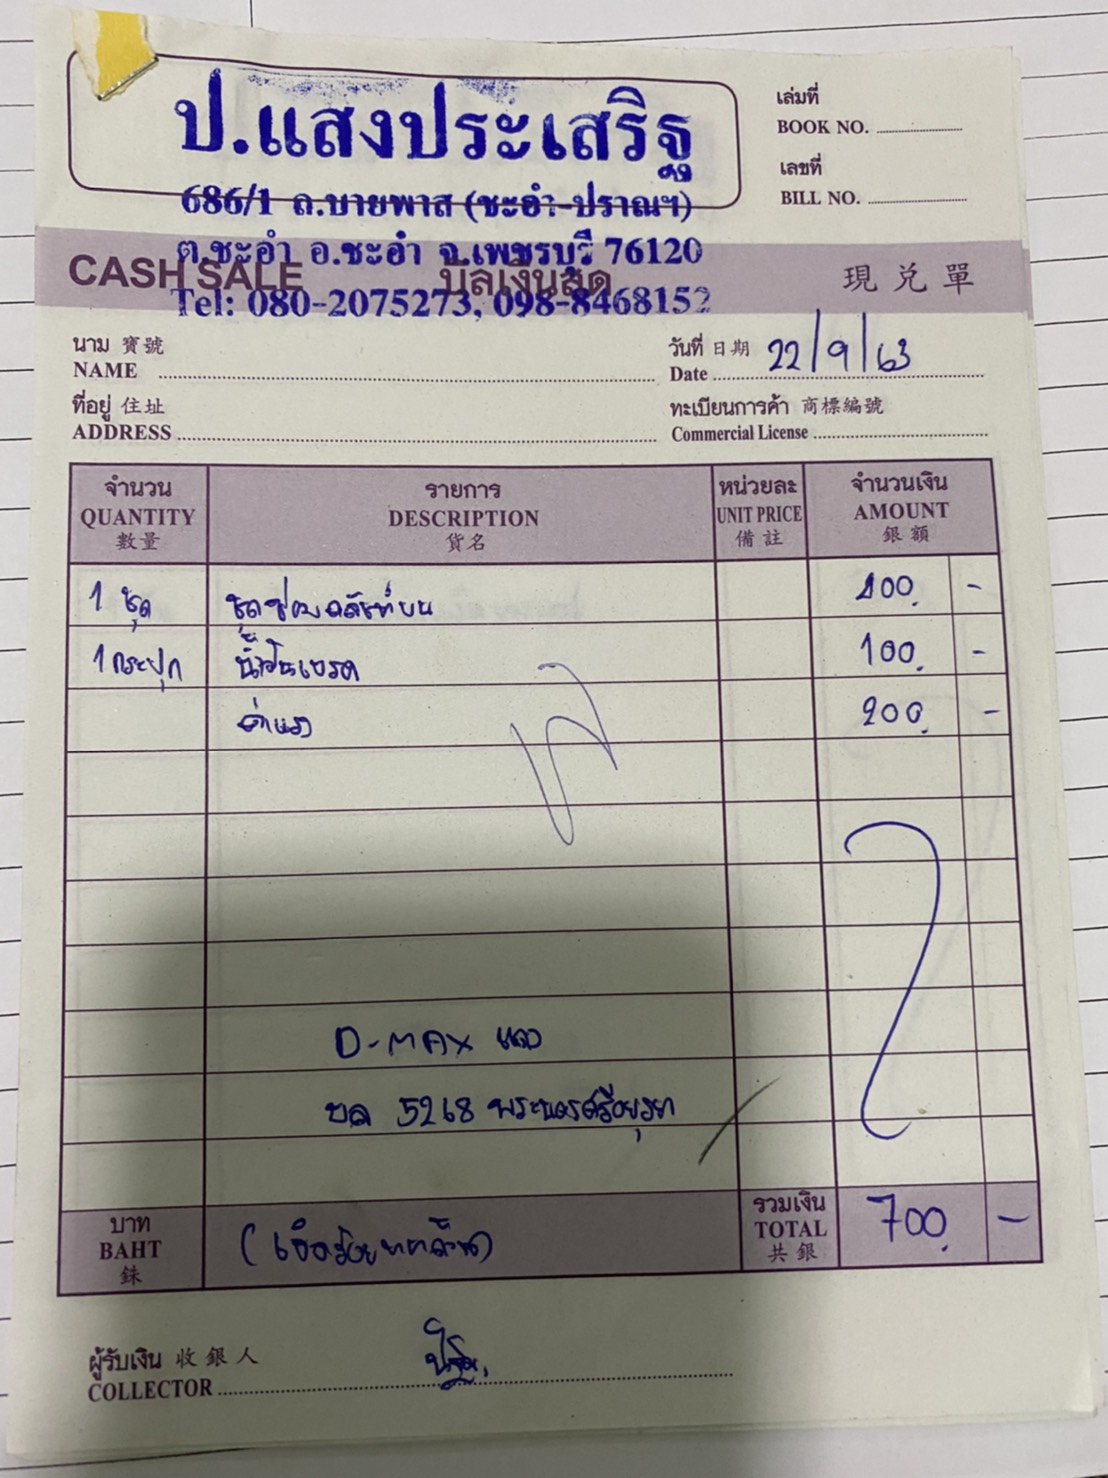 ป.แสงประเสริฐ
686/1 ถ.บายพาส (ชะอำ-ปราณฯ)
ต.ชะอำ อ.ชะอำ จ.เพชรบุรี 76120
Tel: 080-2075273, 098-8468152
เล่มที่
BOOK NO.
เลขที่
BILL NO.
CASH SALE บิลเงินสด 現兑單
นาม 寶號
NAME
วันที่ 日期 22/9/63
Date
ที่อยู่ 住址
ADDRESS
ทะเบียนการค้า 商標編號
Commercial License
จำนวน รายการ หน่วยละ จำนวนเงิน
QUANTITY DESCRIPTION UNIT PRICE AMOUNT
數量 貨名 備註 銀額
1 ชุด ชุดซ่อมคลัชท์บน 400 -
1 กระปุก น้ำมันเบรค 100 -
ค่าแรง 200 -
D-MAX แดง
บล 5268 พระนครศรีอยุธยา
บาท
BAHT
銖
(เจ็ดร้อยบาทถ้วน)
รวมเงิน
TOTAL
共銀
700 -
ผู้รับเงิน 收銀人
COLLECTOR